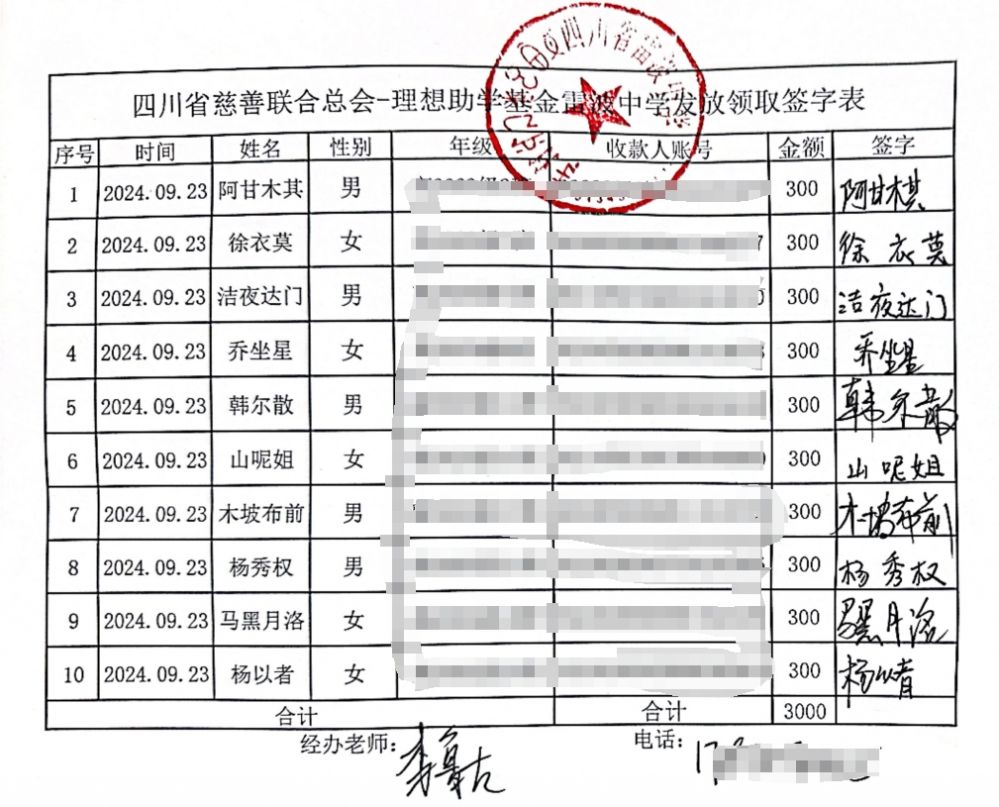 四川省慈善联合总会-理想助学基金雷波中学发放领取签字表
序号 时间 姓名 性别 年级 收款人账号 金额 签字
1 2024.09.23 阿甘木其 男 300 阿甘木其
2 2024.09.23 徐衣莫 女 7 300 徐衣莫
3 2024.09.23 洁夜达门 男 300 洁夜达门
4 2024.09.23 乔坐星 女 300 乔坐星
5 2024.09.23 韩尔散 男 300 韩尔散
6 2024.09.23 山呢姐 女 300 山呢姐
7 2024.09.23 木坡布前 男 300 木坡布前
8 2024.09.23 杨秀权 男 300 杨秀权
9 2024.09.23 马黑月洛 女 300 马黑月洛
10 2024.09.23 杨以者 女 300 杨以者
合计 合计 3000
经办老师: 电话: